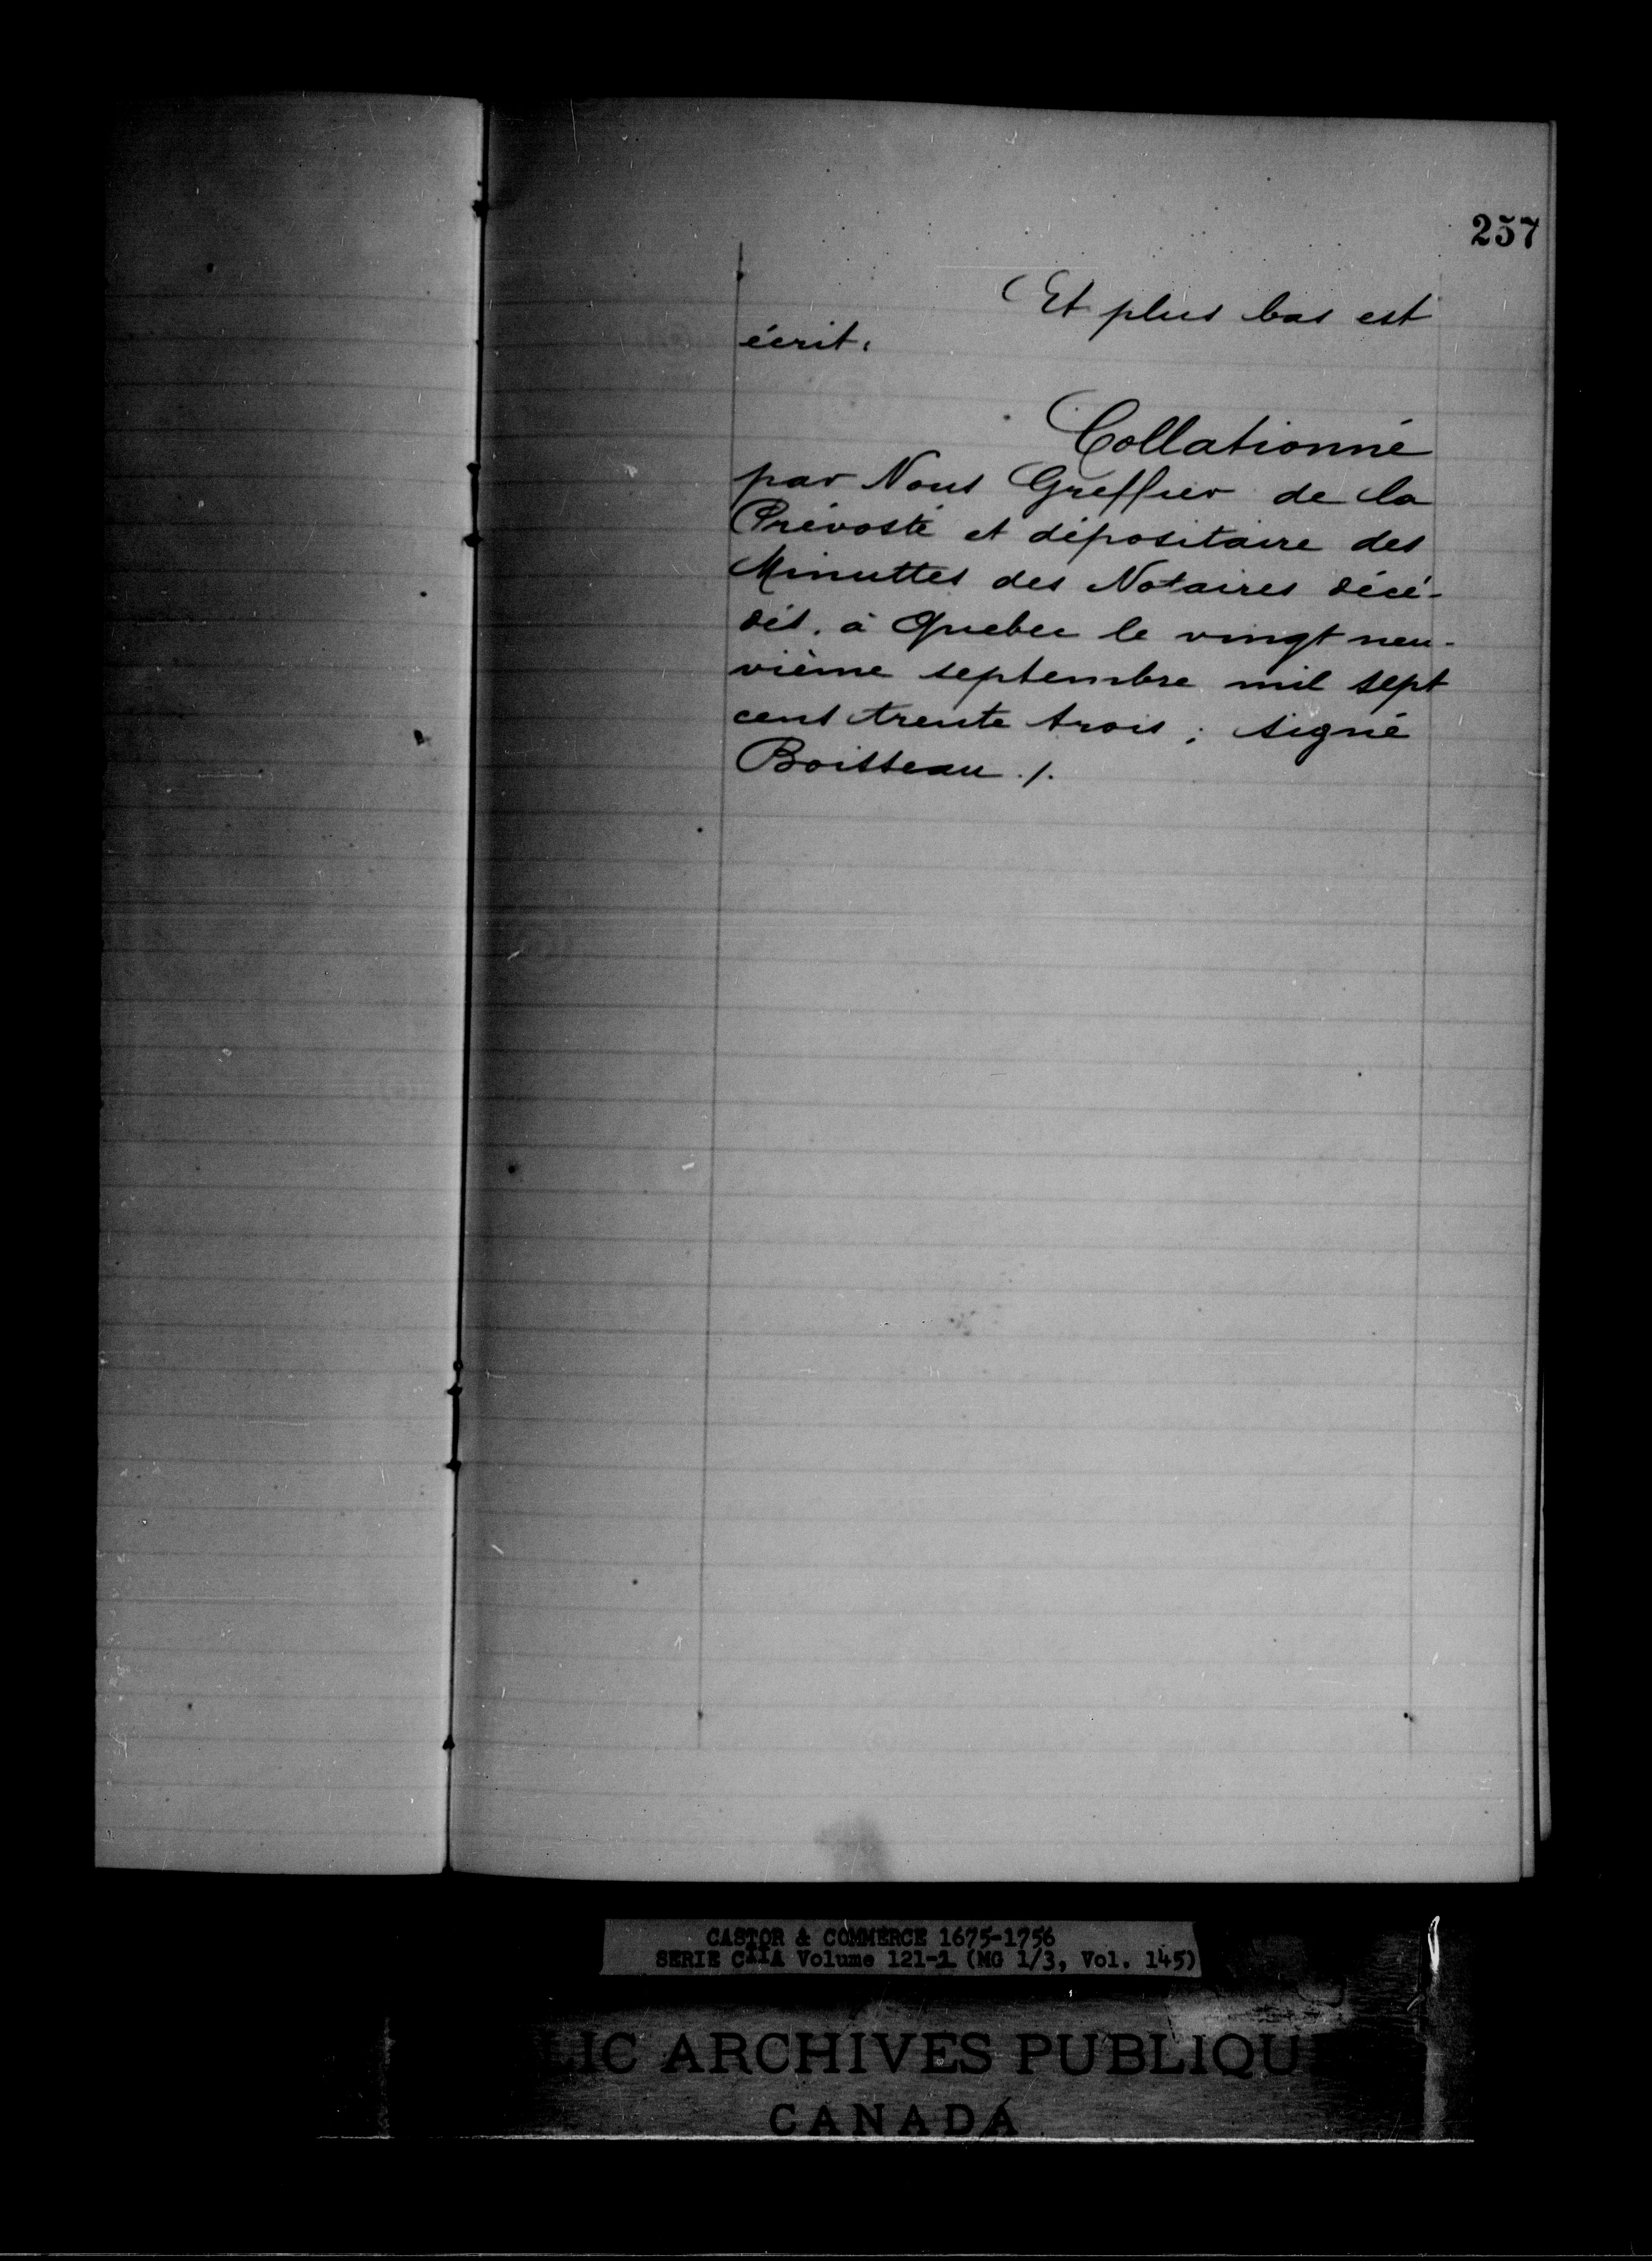 257
Et plus bas est
écrit.
Collationné
par Nous Greffier de la
Prévosté et dépositaire des
Minuttes des Notaires décé-
dés. à Quebec le vingt neu-
vième septembre mil sept
cent trente trois ; signé
Boisseau ./.
CASTOR & COMMERCE 1675-1756
SERIE CIIA Volume 121-1 (MG 1/3, Vol. 145)
LIC ARCHIVES PUBLIQU
CANADA